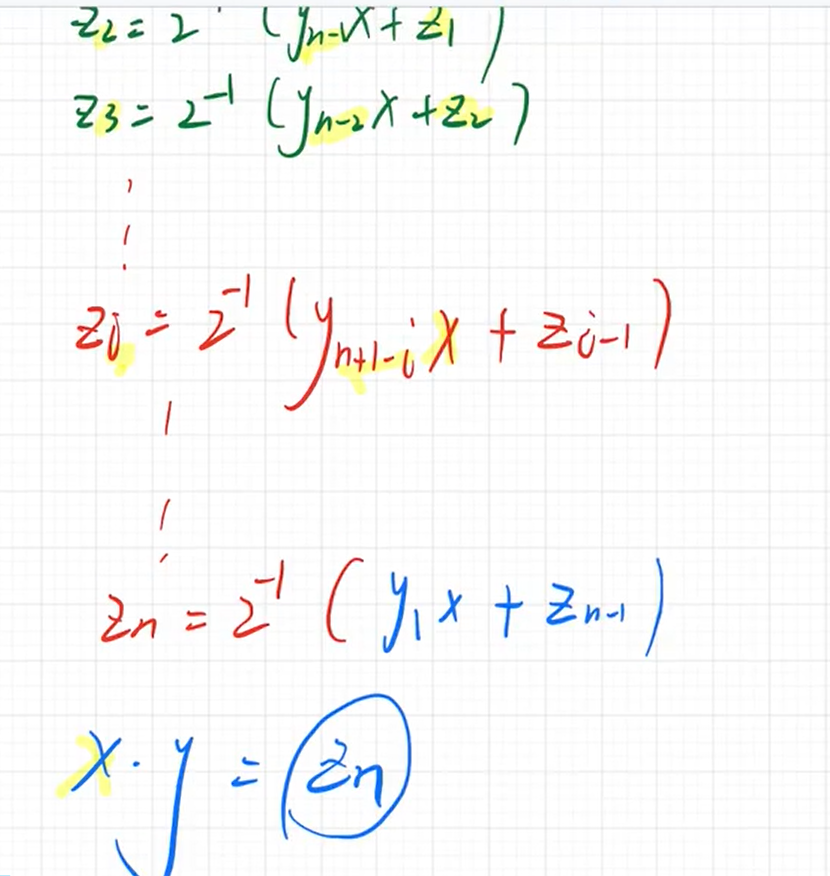 z₂ = 2⁻¹ (yₙ₋₁x + z₁)
z₃ = 2⁻¹ (yₙ₋₂x + z₂)
⋮
zᵢ = 2⁻¹ (yₙ₊₁₋ᵢx + zᵢ₋₁)
⋮
zₙ = 2⁻¹ (y₁x + zₙ₋₁)
x · y = zₙ